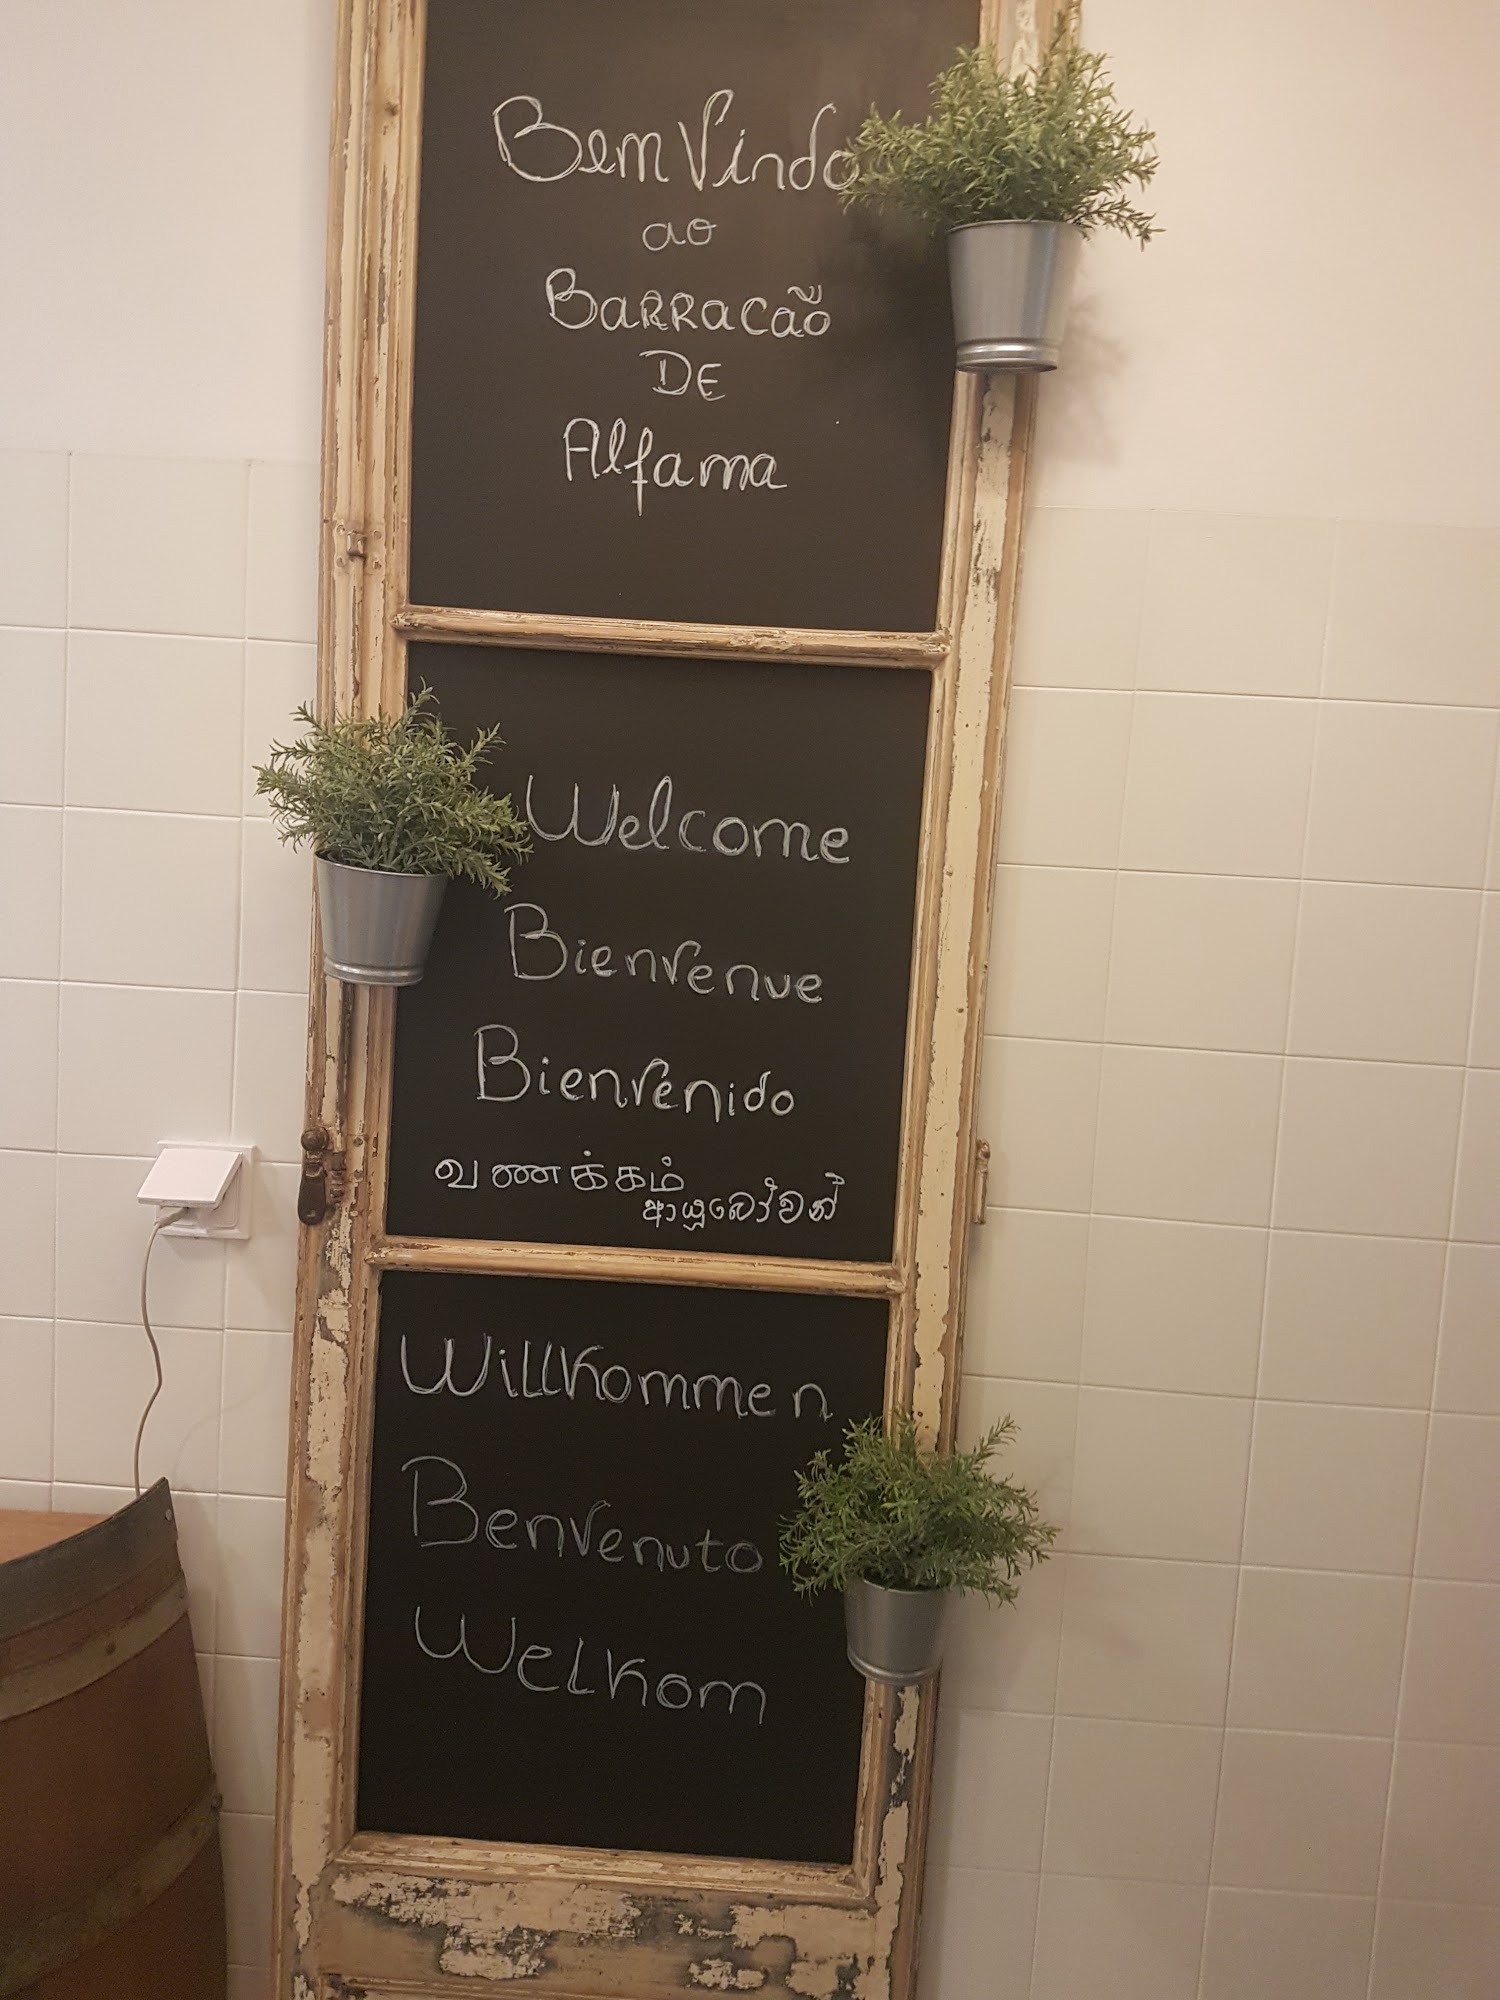 Bem Vindo
ao
Barracão
DE
Alfama
Welcome
Bienvenue
Bienvenido
வணக்கம்
ආයුබෝවන්
Willkommen
Benvenuto
Welkom